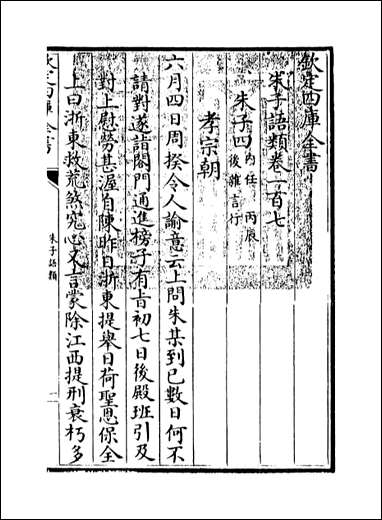 欽定四庫全書
朱子語類卷一百七
朱子四 内任 丙辰
後雜言行
孝宗朝
六月四日周揆令人諭意云上問朱某到已數日何不
請對遂詣閤門通進榜子有旨初七日後殿班引及
對上慰勞甚渥自陳昨日浙東提舉日荷聖恩保全
上曰浙東救荒煞究心又言蒙除江西提刑衰朽多
欽定四庫全書
朱子語類
一